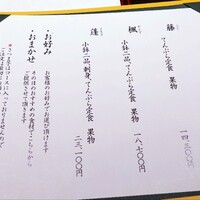 藤
てんぷら定食 果物
一四、三〇〇円
楓
小鉢二品、てんぷら定食 果物
一八、七〇〇円
蓬
小鉢二品、刺身、てんぷら定食 果物
二三、一〇〇円
・お好み
お客様のお好みでお選び頂けます
・おまかせ
その日のおすすめの食材でこちらから
ご提供させて頂きます